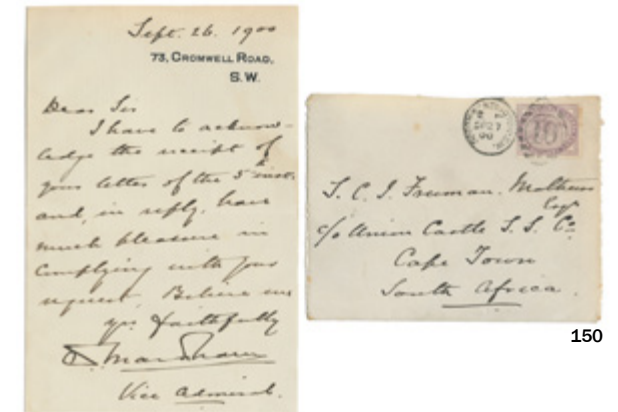 Sept. 26. 1900
73, CROMWELL ROAD,
S.W.
Dear Sir
I have to acknow-
ledge the receipt of
your letter of the 5th inst:
and, in reply, have
much pleasure in
complying with your
request, Believe me
yrs faithfully
Vice Admiral.
Freeman. Mathews
Esqr
c/o Union Castle S. S. Co
Cape Town
South Africa.
150